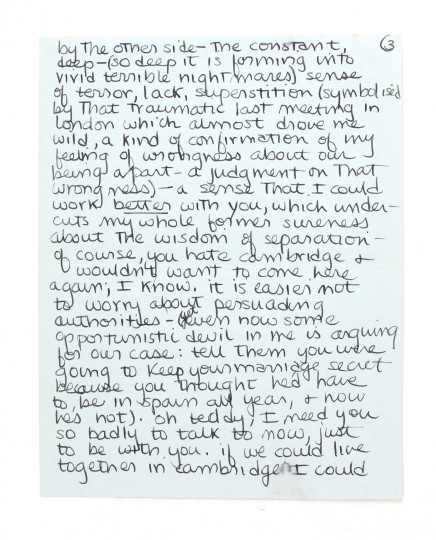 3
by the other side - the constant,
deep - (so deep it is forming into
vivid terrible nightmares) sense
of terror, lack, superstition (symbolised
by that traumatic last meeting in
london which almost drove me
wild, a kind of confirmation of my
feeling of wrongness about our
being apart - a judgment on that
wrongness) - a sense that I could
work better with you, which under-
cuts my whole former sureness
about the wisdom of separation -
of course, you hate cambridge &
wouldn't want to come here
again; I know. it is easier not
to worry about persuading
authorities - yet even now some
opportunistic devil in me is arguing
for our case: tell them you were
going to keep your marriage secret
because you thought he'd have
to be in spain all year, & now
he's not). oh teddy, I need you
so badly to talk to now, just
to be with you. if we could live
together in cambridge I could